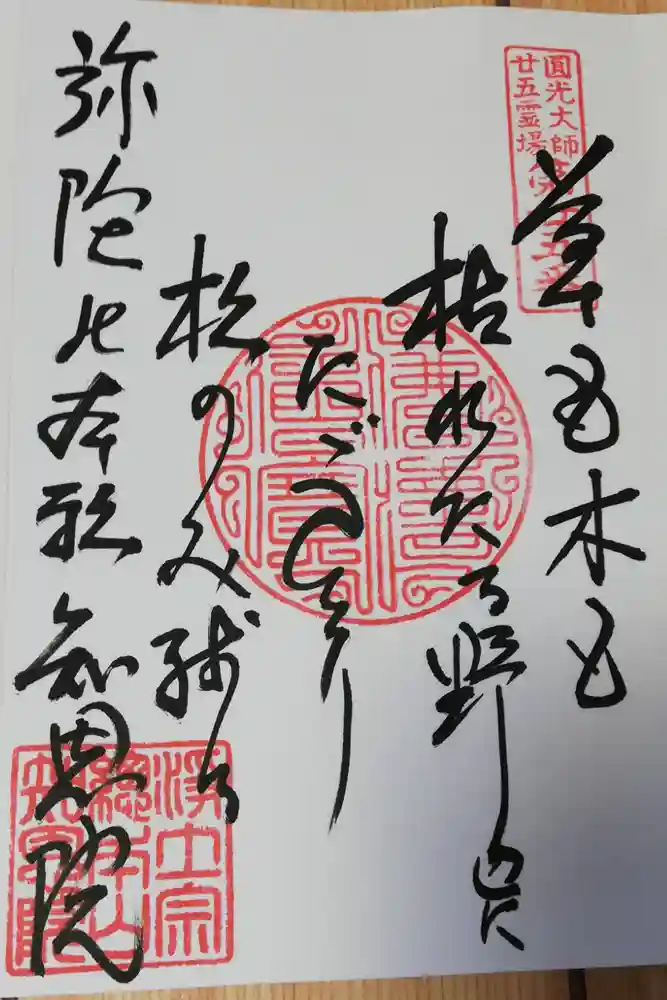 圓光大師
廿五霊場
第廿五番
草も木も
枯れたる野辺に
たゞひとり
松のみ残る
弥陀の本願 知恩院
浄土宗
總本山
知恩院